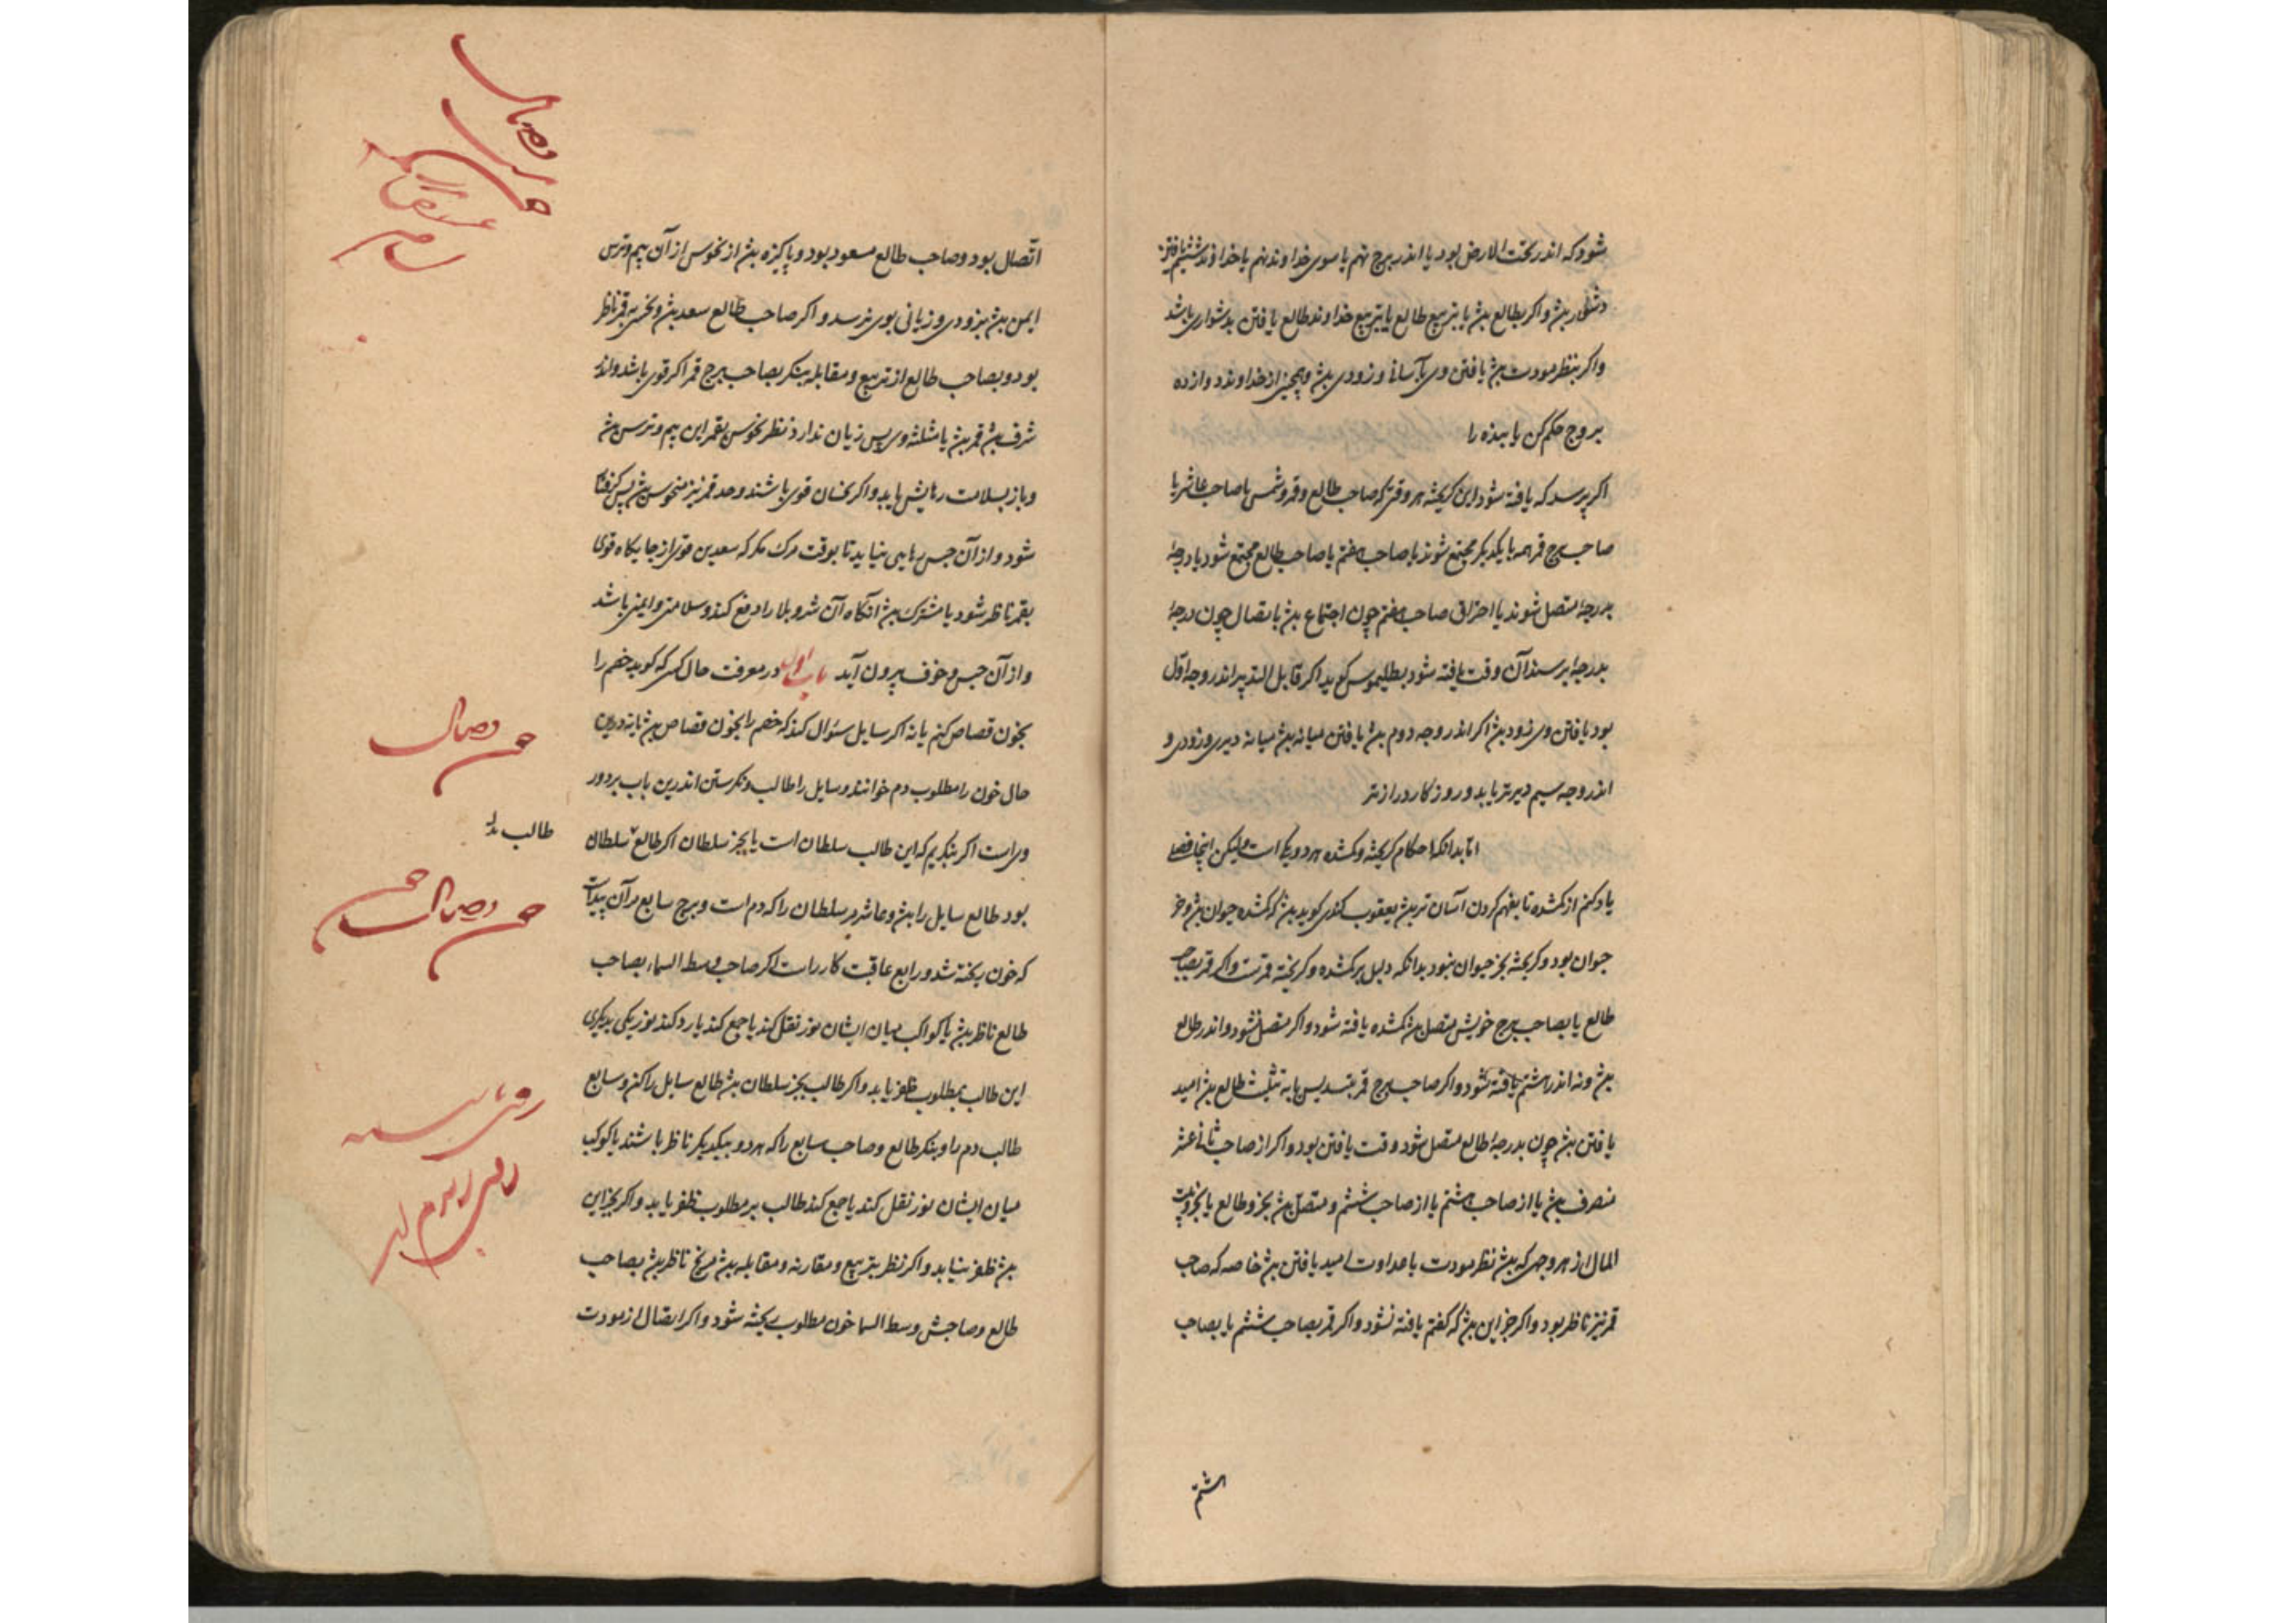 شود که اندر تحت الارض بود یا اندر برج نهم یا سوی خداوند نهم یا خداوند ششم یافتن
دشوار بش و اکر بطالع بش یا بتربیع طالع یا بتربیع خداوند طالع یافتن بدشواری باشد
و اکر بنظر مودت بش یافتن وی بآسانی و زودی بش و همچنین از خداوند دوازده
بروج حکم کن یا بنده را
اکر پرسد که یافته شود این کریخته هر وقتی که صاحب طالع و قمر و شمس با صاحب عاشر یا
صاحب برج قمر همه با یکدیکر مجتمع شوند یا صاحب هفتم با صاحب طالع مجتمع شود یا درجهٔ
بدرجهٔ متصل شوند یا احتراق صاحب هفتم چون اجتماع بش یا تصال چون درجهٔ
بدرجهٔ برسد آن وقت یافته شود بطلیموس کوید اکر قابل التدبیر اندر وجه اوّل
بود یافتن وی زود بش اکر اندر وجه دوم بش یافتن میانه بش میانه دیری و زودی و
اندر وجه سیم دیرتر یابد و روزکار درازتر
امّا بدانکه احکام کریخته و کمشده هر دو یکی است ولیکن اینجا فصلی
یاد کنم از کمشده تا بفهم کردن آسان تر بش یعقوب کندی کوید بش که کمشده حیوان بش و جز
حیوان بود و کریخته بجز حیوان نبود بدانکه دلیل بر کمشده و کریخته قمرست و اکر قمر بصاحب
طالع یا بصاحب برج خویش متصل بش کمشده یافته شود و اکر متصل نشود و اندر طالع
بش و نه اندر هشتم یافته نشود و اکر صاحب برج قمر بتسدیس یا به تثلیث طالع بش امید
یافتن بش چون بدرجهٔ طالع متصل شود وقت یافتن بود و اکر از صاحب ثانی عشر
منصرف بش یا از صاحب هشتم یا از صاحب ششم و متصل بش بجزو طالع یا بجزو بیت
المال از هر وجهی که بش نظر مودت یا عداوت امید یافتن بش خاصه که صاحب
قمر نیز ناظر بود و اکر جز این بش که کفتم یافته نشود و اکر قمر بصاحب ششم یا بصاحب
هشتم
اتّصال بود و صاحب طالع مسعود بود و پاکیزه بش از نحوس از آن بیم و ترس
ایمن بش بزودی و زیانی بوی نرسد و اکر صاحب طالع سعد بش و نحس بر قمر ناظر
بود و بصاحب طالع از تربیع و مقابله بنکر بصاحب برج قمر اکر قوی باشد و اندر
شرف بش قمر بش یا مثلثه وی پس زیان ندارد نظر نحوس بقمر این بیم و ترس بش
و باز بسلامت رهایش یابد و اکر نحسان قوی باشند و صد قمر نیز منحوس بش پس کرفتار
شود و از آن حبس رهایی نیابد تا بوقت مرک مکر که سعدین قوی از جایکاه قوی
بقمر ناظر شود یا مشترک بش آنکاه آن شر و بلا را دفع کند و سلامتی و ایمنی باشد
و از آن حبس و خوف بیرون آید باب اول در معرفت حال کسی که کوید خصم را
بخون قصاص کنم یا نه اکر سایل سئوال کند که خصم را بخون قصاص بش یا نه درین
حال خون را مطلوب دم خوانند و سایل را طالب و نکرستن اندرین باب بر دور
وی است اکر بنکریم که این طالب سلطان است یا بجز سلطان اکر طالع سلطان
طالب
بود طالع سایل را بش و عاشر مر سلطان را که دم است و برج سابع مر آن پیداست
که خون ریخته شد و رابع عاقبت کار راست اکر صاحب وسط السماء بصاحب
طالع ناظر بش یا کواکب میان ایشان نور نقل کند یا جمع کند یا رد کند نور یکی بدیکری
این طالب بمطلوب ظفر یابد و اکر طالب بجز سلطان بش طالع سایل را کن و سابع
طالب دم را و بنکر طالع و صاحب سابع را که هر دو بیکدیکر ناظر باشند یا کوکب
میان ایشان نور نقل کند یا جمع کند طالب بر مطلوب ظفر یابد و اکر بجز این
بش ظفر نیابد و اکر نظر بتربیع و مقارنه و مقابله بش مریخ ناظر بش بصاحب
طالع و صاحبش وسط السما خون مطلوب ریخته شود و اکر اتصال از مودت